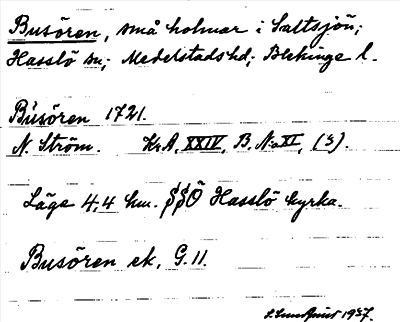 Busören, små holmar i Saltsjön;
Hasslö sn; Medelstads hd; Blekinge l.
Busören 1721.
N. Ström. Kr.A, XXIV, B. N:o XI, (3).
Läge 4,4 km. SSÖ Hasslö kyrka.
Busören ek. G.11.
1937.